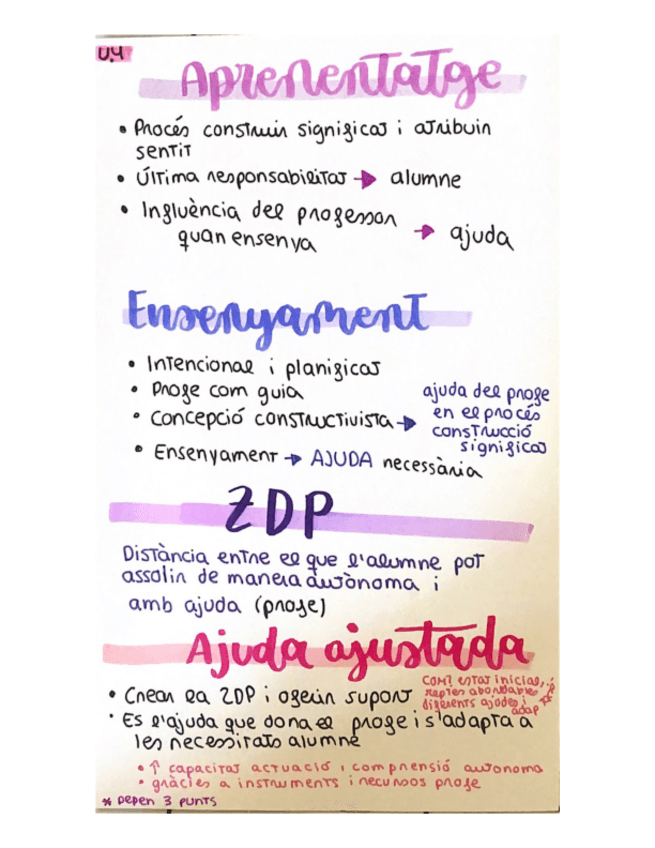 U.4
Aprenentatge
• Procés construir significat i atribuir
sentit
• Última responsabilitat → alumne
• Influència del professor
quan ensenya → ajuda
Ensenyament
• Intencional i planificat
• Profe com guia
• Concepció constructivista →
ajuda del profe
en el procés
construcció
significat
• Ensenyament → AJUDA necessària
ZDP
Distància entre el que l'alumne pot
assolir de manera autònoma i
amb ajuda (profe)
Ajuda ajustada
• Crear la ZDP i oferir suport
com? estat inicial,
reptes abordables
diferents ajudes i
adap
• Es l'ajuda que dona el profe i s'adapta a
les necessitats alumne
• ↑ capacitat actuació i comprensió autonoma
• gràcies a instruments i recursos profe
* pepen 3 punts